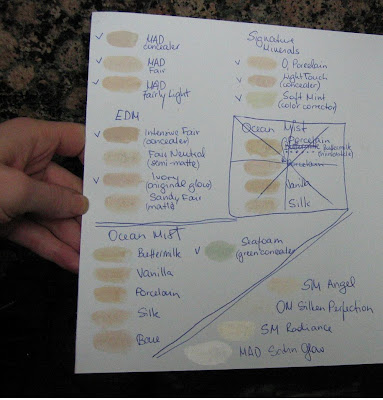 MAD
concealer
MAD
Fair
MAD
Fairly Light
EDM
Intensive Fair
(concealer)
Fair Neutral
(semi-matte)
Ivory
(original glow)
Sandy Fair
(matte)
Signature
Minerals
O. Porcelain
Night Touch
(concealer)
Soft Mint
(color corrector)
Ocean Mist
Porcelain
Buttermilk
Porcelain
Vanilla
Silk
Ocean Mist
Buttermilk
Vanilla
Porcelain
Silk
Bare
Seafoam
(green concealer)
SM Angel
OM Silken Perfection
SM Radiance
MAD Satin Glow